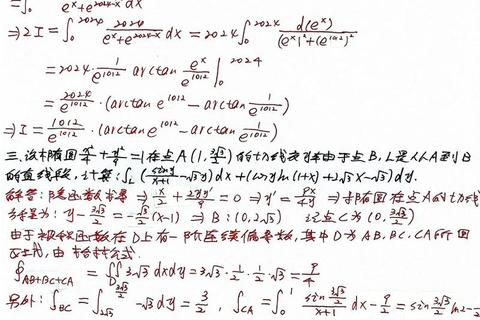 = ∫₀ e^x+e^{2024-x} dx
⇒ 2I = ∫₀^{2024} 2024/(e^x+e^{2024-x}) dx = 2024 ∫₀^{2024} d(e^x)/((e^x)²+(e^{1012})²)
= 2024 · 1/e^{1012} arctan e^x/e^{1012} |₀^{2024}
= 2024/e^{1012} · (arctan e^{1012} - arctan 1/e^{1012})
⇒ I = 1012/e^{1012} · (arctan e^{1012} - arctan 1/e^{1012})
三、设椭圆 x²/4 + y²/9 = 1 在点 A(1, 3√3/2) 的切线交y轴于点B, L是从A到B
的直线段, 计算: ∫_L (sin y/(x+1) - √3 y) dx + (cos y ln(1+x) + 2√3 x - √3) dy.
解答: 隐函数求导 ⇒ x/2 + 2yy'/9 = 0 ⇒ y' = - 9x/4y ⇒ 椭圆在点A的切线
方程为: y - 3√3/2 = -√3/2 (x-1) ⇒ B: (0, 2√3) 记点C为 (0, 3√3/2)
由于被积函数在D上有一阶连续偏导数, 其中D为AB、BC、CA所围
区域, 由格林公式
∮_{AB+BC+CA} = ∬_D 3√3 dxdy = 3√3 · 1/2 · 1/2 · √3 = 9/4
另外: ∫_{BC} = ∫_{2√3}^{3√3/2} -√3 dy = 3/2, ∫_{CA} = ∫₀¹ sin 3√3/2 /(x+1) dx - 9/2 = sin 3√3/2 ln2 -